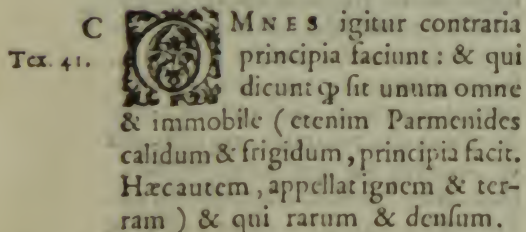 C
Tex. 41.
OMNES igitur contraria
principia faciunt : & qui
dicunt ꝙ sit unum omne
& immobile ( etenim Parmenides
calidum & frigidum , principia facit.
Hæc autem , appellat ignem & ter-
ram ) & qui rarum & densum .